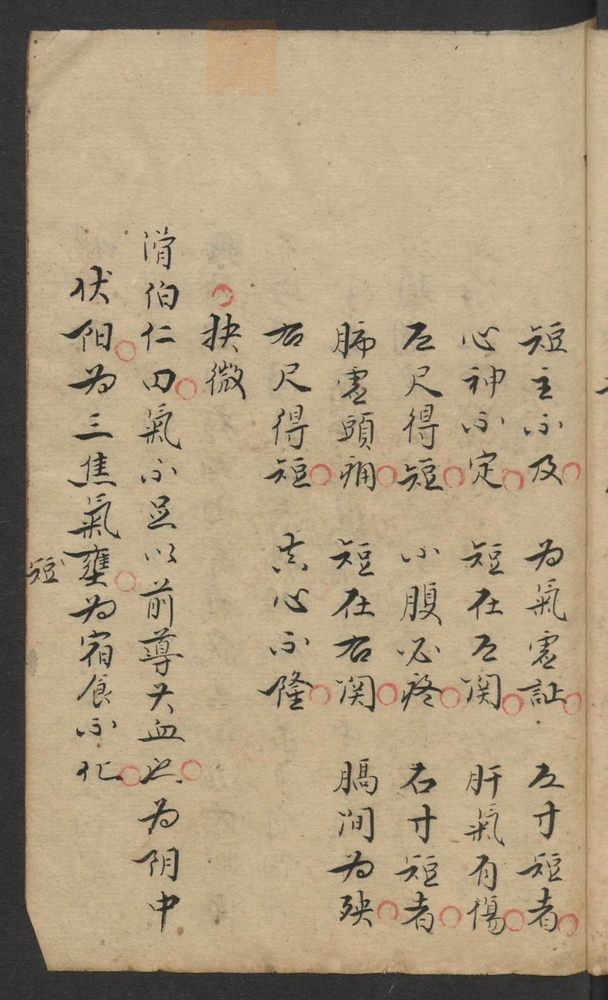 短主不及 为氣虛証 左寸短者
心神不定 短在左関 肝氣有傷
左尺得短 小腹必疼 右寸短者
肺虛頭痛 短在右関 膈间为殃
右尺得短 真心不隆
抉微
滑伯仁曰氣不足以前導其血也为阴中
伏阳为三焦氣壅为宿食不化
短